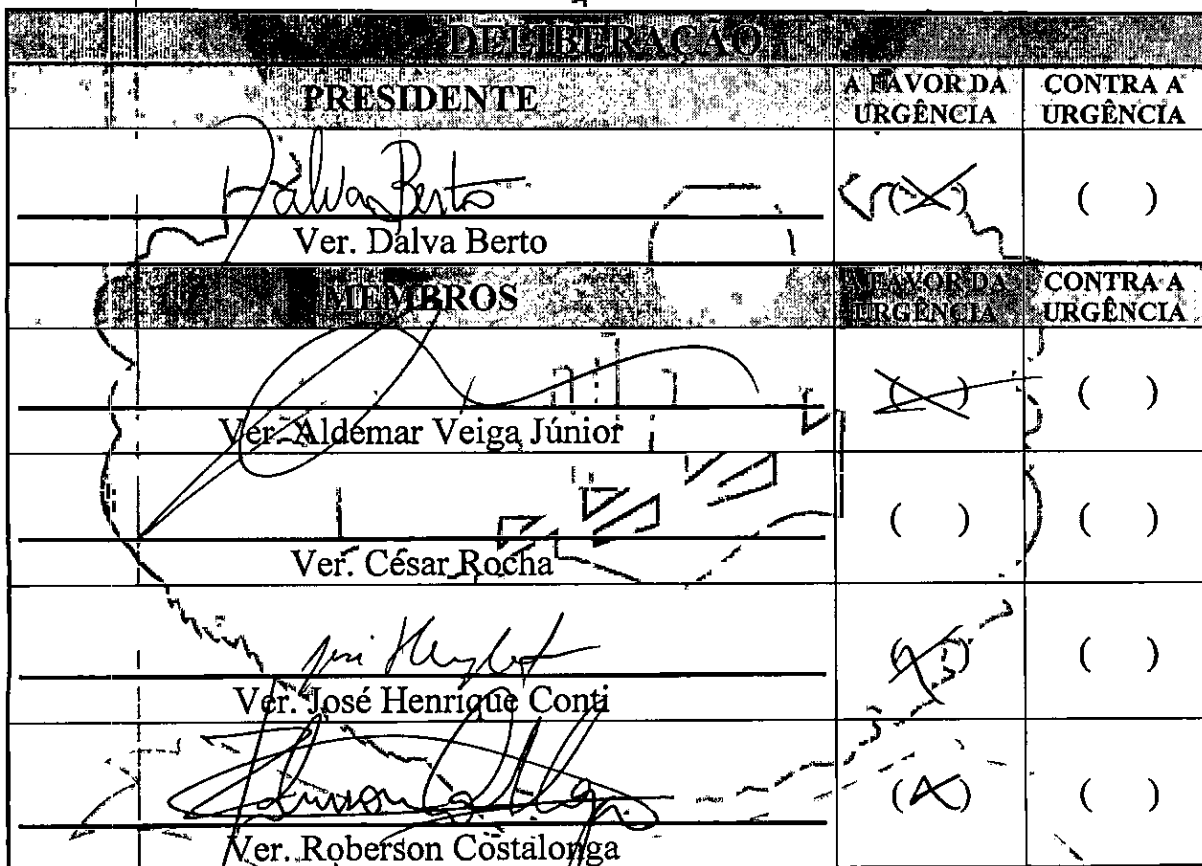 DELIBERAÇÃO
PRESIDENTE
A FAVOR DA URGÊNCIA
CONTRA A URGÊNCIA
Dalva Berto
(X)
( )
Ver. Dalva Berto
MEMBROS
A FAVOR DA URGÊNCIA
CONTRA A URGÊNCIA
(X)
( )
Ver. Aldemar Veiga Júnior
( )
( )
Ver. César Rocha
(X)
( )
Ver. José Henrique Conti
(X)
( )
Ver. Roberson Costalonga